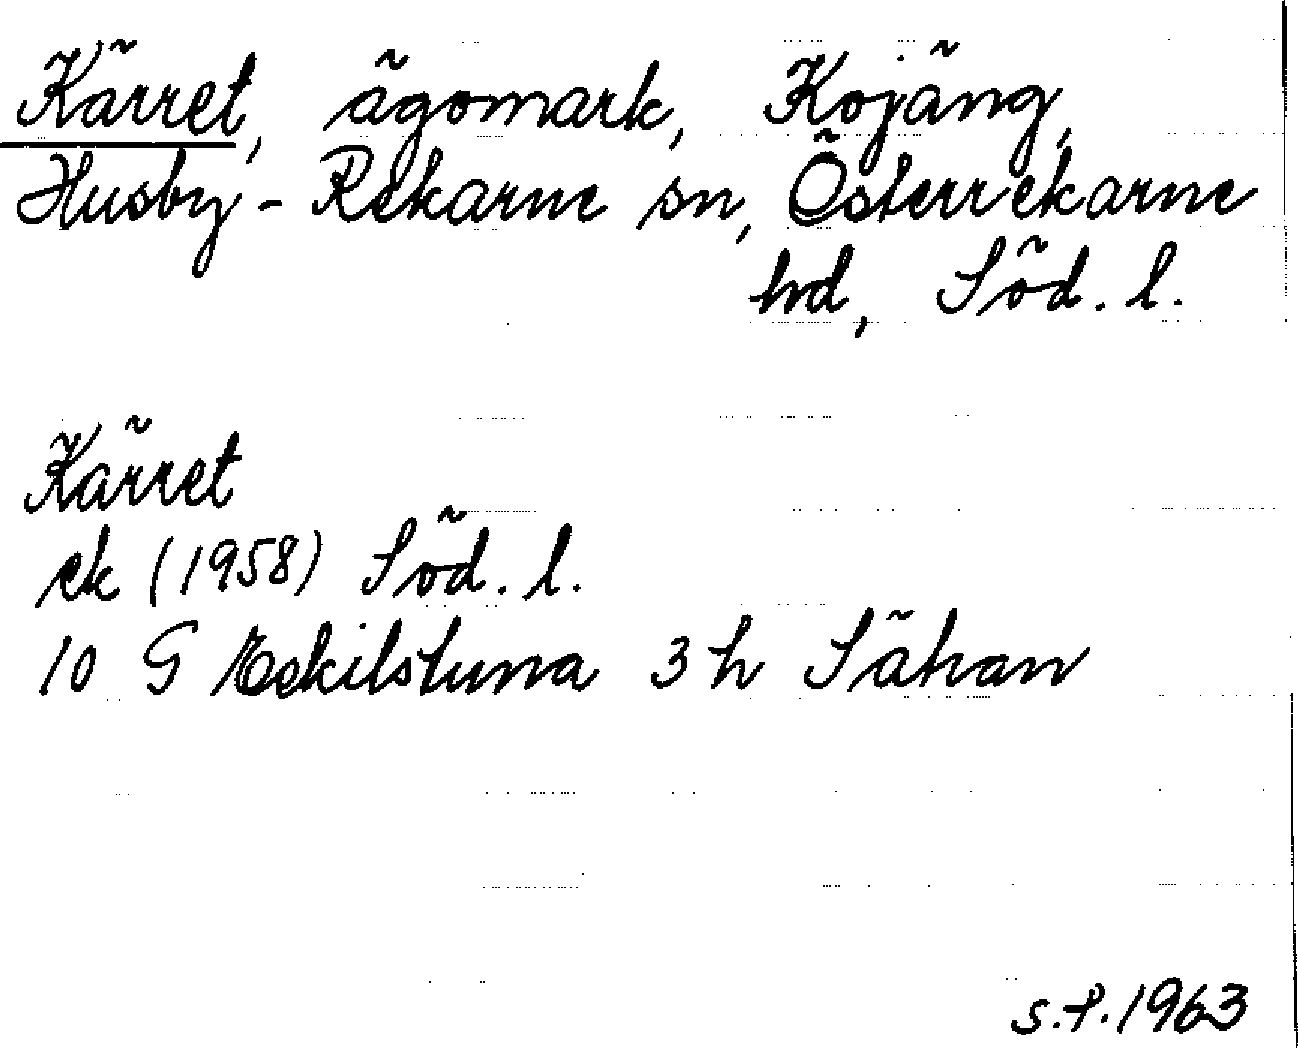 Kärret, ägomark, Kojäng,
Husby-Rekarne sn, Österrekarne
hd, Söd. l.
Kärret
ek (1958) Söd. l.
10 G Eskilstuna 3 h Sähan
s.f. 1963